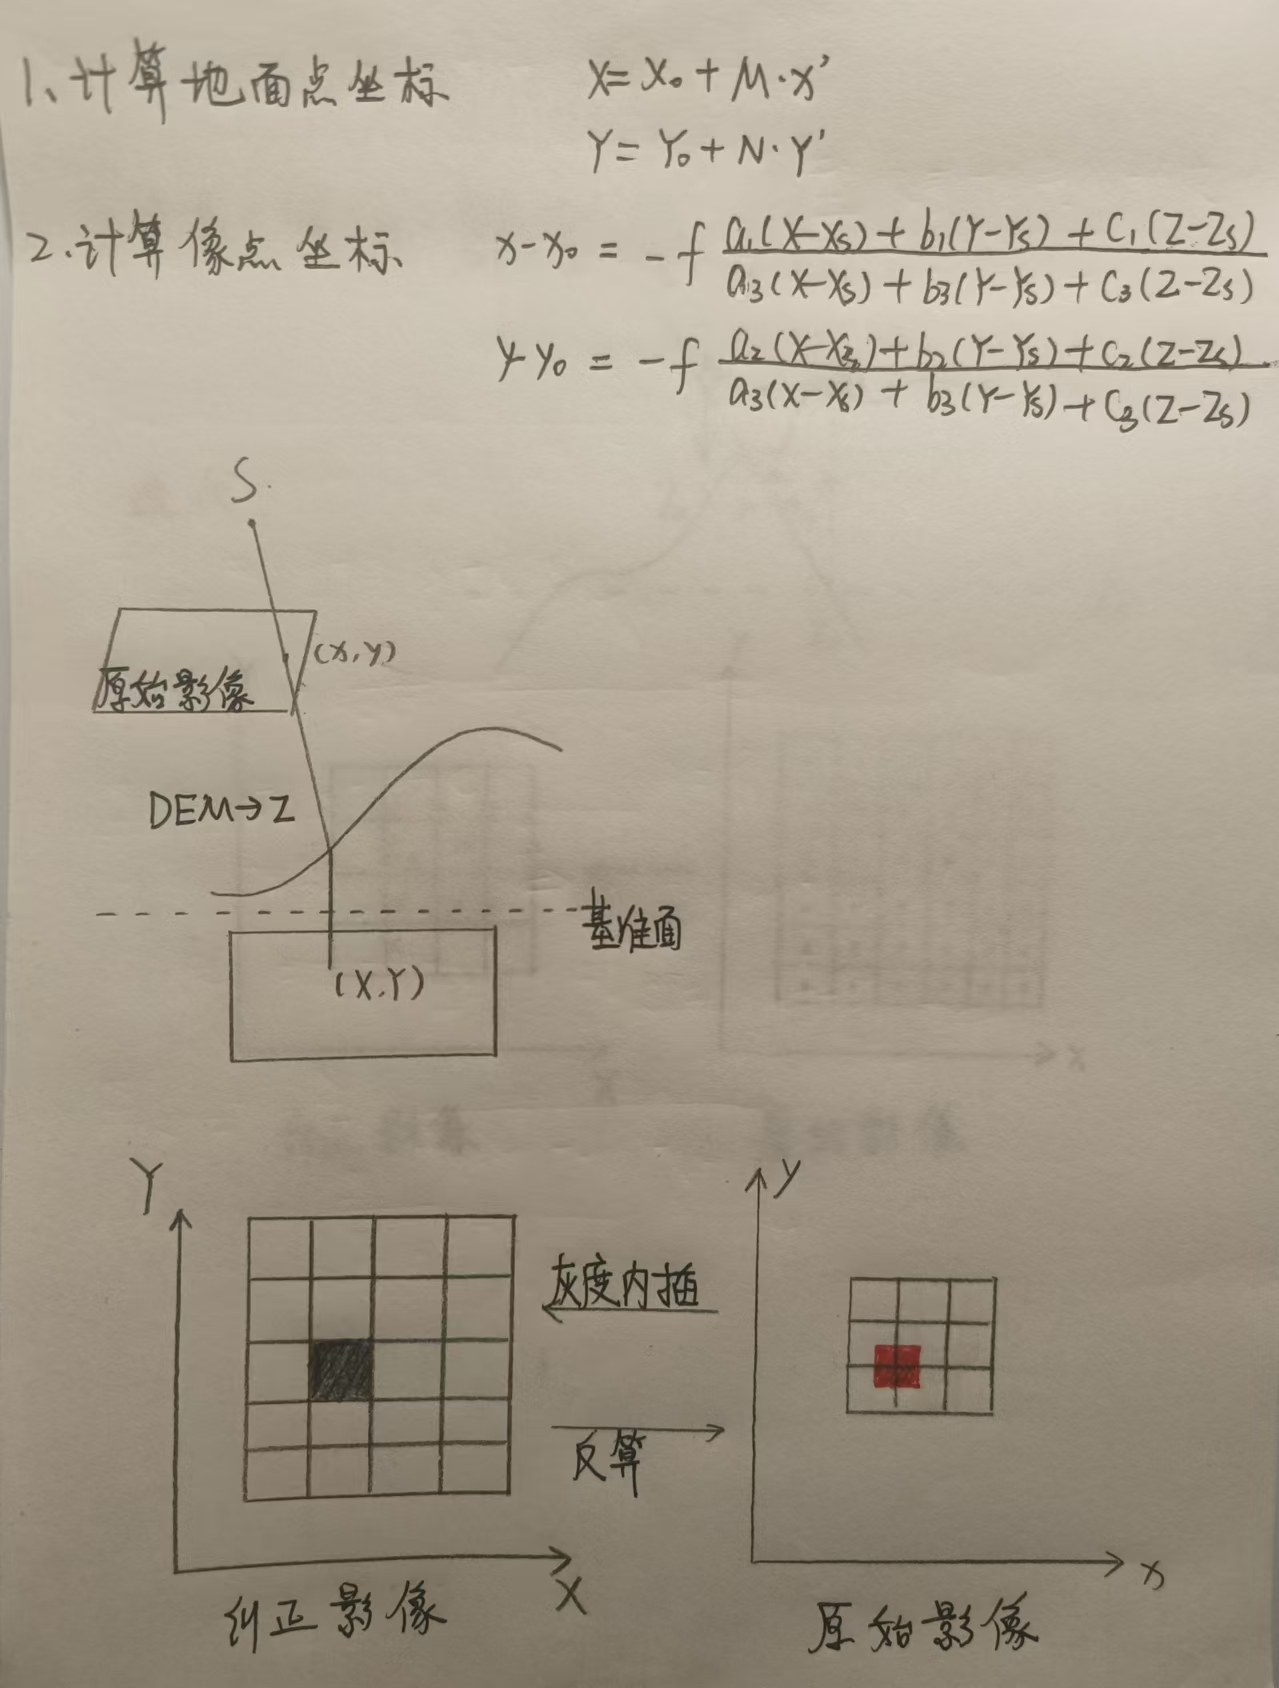 1、计算地面点坐标 X=X₀+M·x'
Y=Y₀+N·Y'
2.计算像点坐标 x-x₀ = -f a₁(X-Xs)+b₁(Y-Ys)+C₁(Z-Zs)
a₃(X-Xs)+b₃(Y-Ys)+C₃(Z-Zs)
y-y₀ = -f a₂(X-Xs)+b₂(Y-Ys)+C₂(Z-Zs)
a₃(X-Xs)+b₃(Y-Ys)+C₃(Z-Zs)
S.
(x,y)
原始影像
DEM→Z
基准面
(X,Y)
Y
y
灰度内插
反算
X
x
纠正影像
原始影像